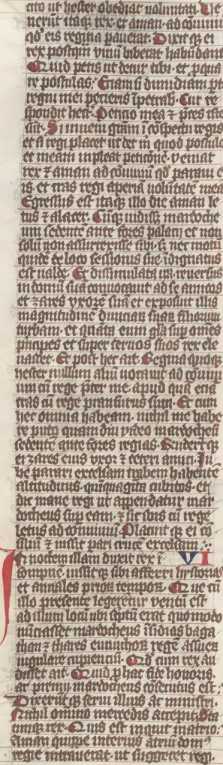 cito ut hester obediat voluntati. Ve
nerunt itaq; rex et aman ad conviviu
qd eis regina paverat. Dixit q; ei
rex postqm vinu biberat habundant
Quid petis ut detur tibi. et p qua re
postulas. Etiam si dimidiam pt
regni mei petieris impetrab. Cui re
spondit hest. Petitio mea et preces iste
sut. Si inveni gram i conspectu regis
et si regi placet ut det m quod postulo
et meam impleat peticione. veniat
rex et aman ad conviviu qd paravi e
is. et cras regi aperia volutate mea.
Egressus est itaq; illo die aman le
tus et alacer. Cuq; vidiss; mardoche
um sedente ante fores palacij et non
solu non assurrexisse sibi. s; nec mot
quide de loco sessionis sue. indignatus
est valde. Et dissimulata ira reversus
in domu sua convocavit ad se amicos
et zares uxore sua et exposuit illis
magnitudine diviciar suar filiorumq;
turbam. et quata eum gla sup omes
principes et super servos suos rex ele
vasset. Et post hec ait. Regina quoq;
hester nullum aliu vocavit ad conviviu
um cu rege preter me. apud qua etia
cras cu rege pransurus sum. Et cum
hec omnia habeam. nichil me habe
re puto quam diu videro mardocheu
sedente ante fores regias. Rnderut q; ei
zares eius uxor et ceteri amici. Ju
be parari excelsam trabem habente
altitudinis quinquaginta cubitos. et
dic mane regi ut appendatur mar
docheus sup eam. et sic ibis cu rege
letus ad conviviu. Placuit q; ei co
siliu et iussit pari cruce excelsam.
Noctem illam duxit rex i VI
sompne. iussitq; sibi afferri hystorias
et annales priorum tempor. Que cu
illo presente legeretur ventu est
ad illum locu ubi sptu erat quomodo
nuciasset mardocheus isidias baga
than et thares eunuchor regem assuer
iugulare cupiencium. Qd cum rex au
disset ait. Quid p hac fide honoris
ac premij mardocheus cosecutus est.
Dixerut q; servi illius ac ministri.
Nichil omnino mercedis accepit. Sta
timq; rex. Quis est inquit in atrio.
Aman quippe interius atriu dom
regie intraverat. ut suggeret regi